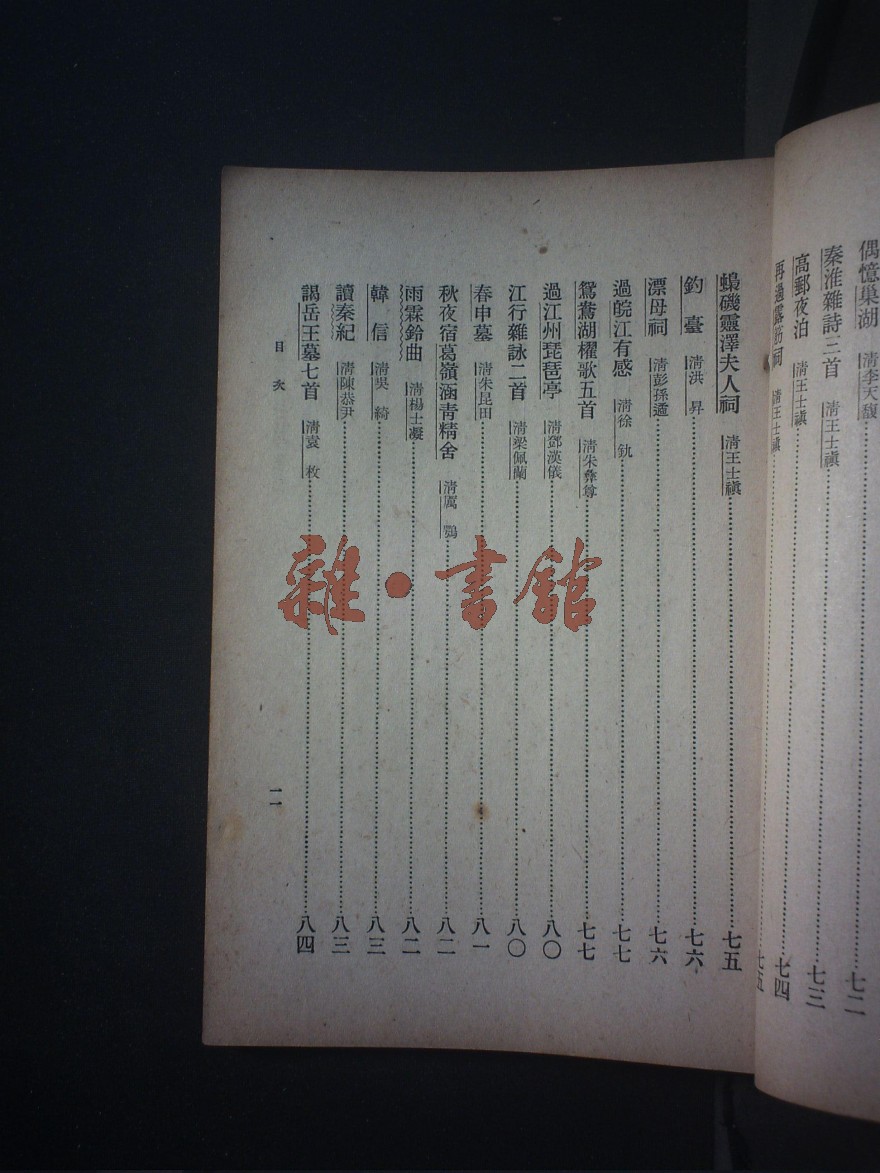 偶憶巢湖 清李天馥 七二
秦淮雜詩三首 清王士禛 七三
高郵夜泊 清王士禛 七四
再過露筋祠 清王士禛 七五
蟂磯靈澤夫人祠 清王士禛 七五
釣臺 清洪昇 七六
漂母祠 清彭孫遹 七六
過皖江有感 清徐釚 七七
鴛鴦湖櫂歌五首 清朱彝尊 七七
過江州琵琶亭 清鄧漢儀 八〇
江行雜詠二首 清梁佩蘭 八〇
春申墓 清朱昆田 八一
秋夜宿葛嶺涵青精舍 清厲鶚 八二
雨霖鈴曲 清楊士凝 八二
韓信 清吳綺 八三
讀秦紀 清陳恭尹 八三
謁岳王墓七首 清袁枚 八四
目次
一一
雜·書館